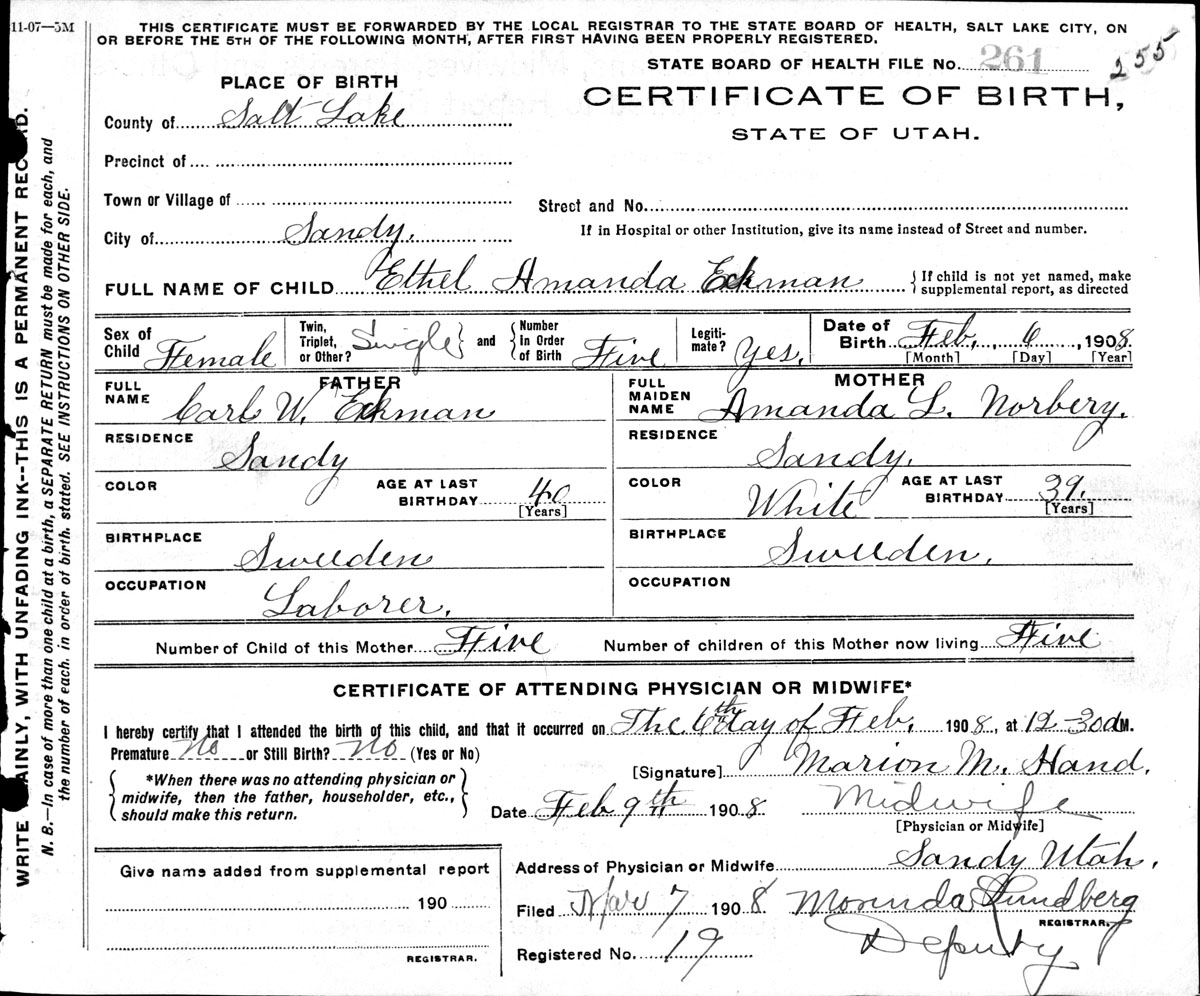 11-07—5M
THIS CERTIFICATE MUST BE FORWARDED BY THE LOCAL REGISTRAR TO THE STATE BOARD OF HEALTH, SALT LAKE CITY, ON
OR BEFORE THE 5TH OF THE FOLLOWING MONTH, AFTER FIRST HAVING BEEN PROPERLY REGISTERED.
STATE BOARD OF HEALTH FILE No. 261 255
PLACE OF BIRTH
CERTIFICATE OF BIRTH,
STATE OF UTAH.
County of Salt Lake
Precinct of
Town or Village of
Street and No.
City of Sandy.
If in Hospital or other Institution, give its name instead of Street and number.
FULL NAME OF CHILD Ethel Amanda Eckman {If child is not yet named, make
supplemental report, as directed
Sex of Child Female Twin, Triplet, or Other? Single } and { Number In Order of Birth Five Legiti- mate? Yes. Date of Birth Feb. 6, 1908
[Month] [Day] [Year]
FATHER
FULL NAME Carl W. Eckman
RESIDENCE Sandy
COLOR AGE AT LAST BIRTHDAY 40 [Years]
BIRTHPLACE Sweeden
OCCUPATION Laborer.
MOTHER
FULL MAIDEN NAME Amanda L. Norbery.
RESIDENCE Sandy.
COLOR White AGE AT LAST BIRTHDAY 39. [Years]
BIRTHPLACE Sweeden.
OCCUPATION
Number of Child of this Mother Five Number of children of this Mother now living Five
CERTIFICATE OF ATTENDING PHYSICIAN OR MIDWIFE*
I hereby certify that I attended the birth of this child, and that it occurred on The 6th day of Feb, 1908, at 12-30 a M.
Premature No or Still Birth? No (Yes or No)
*When there was no attending physician or
midwife, then the father, householder, etc.,
should make this return.
[Signature] Marion M. Hand.
Date Feb 9th 1908 Midwife
[Physician or Midwife]
Address of Physician or Midwife Sandy Utah.
Give name added from supplemental report
190
REGISTRAR.
Filed Mar 7 1908 Morinda Lundberg
REGISTRAR.
Registered No. 19 Deputy
N. B.—In case of more than one child at a birth, a SEPARATE RETURN must be made for each, and
the number of each, in order of birth, stated. SEE INSTRUCTIONS ON OTHER SIDE.
WITH UNFADING INK--THIS IS A PERMANENT